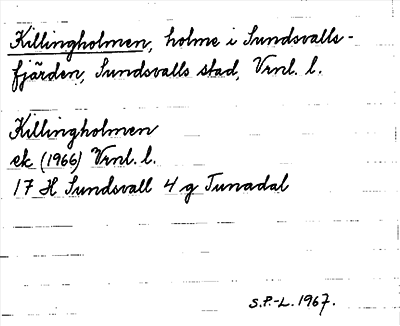 Killingholmen, holme i Sundsvalls-
fjärden, Sundsvalls stad, Vrnl. l.
Killingholmen
ek (1966) Vrnl. l.
17 H Sundsvall 4 g Tunadal
S.P.-L. 1967.